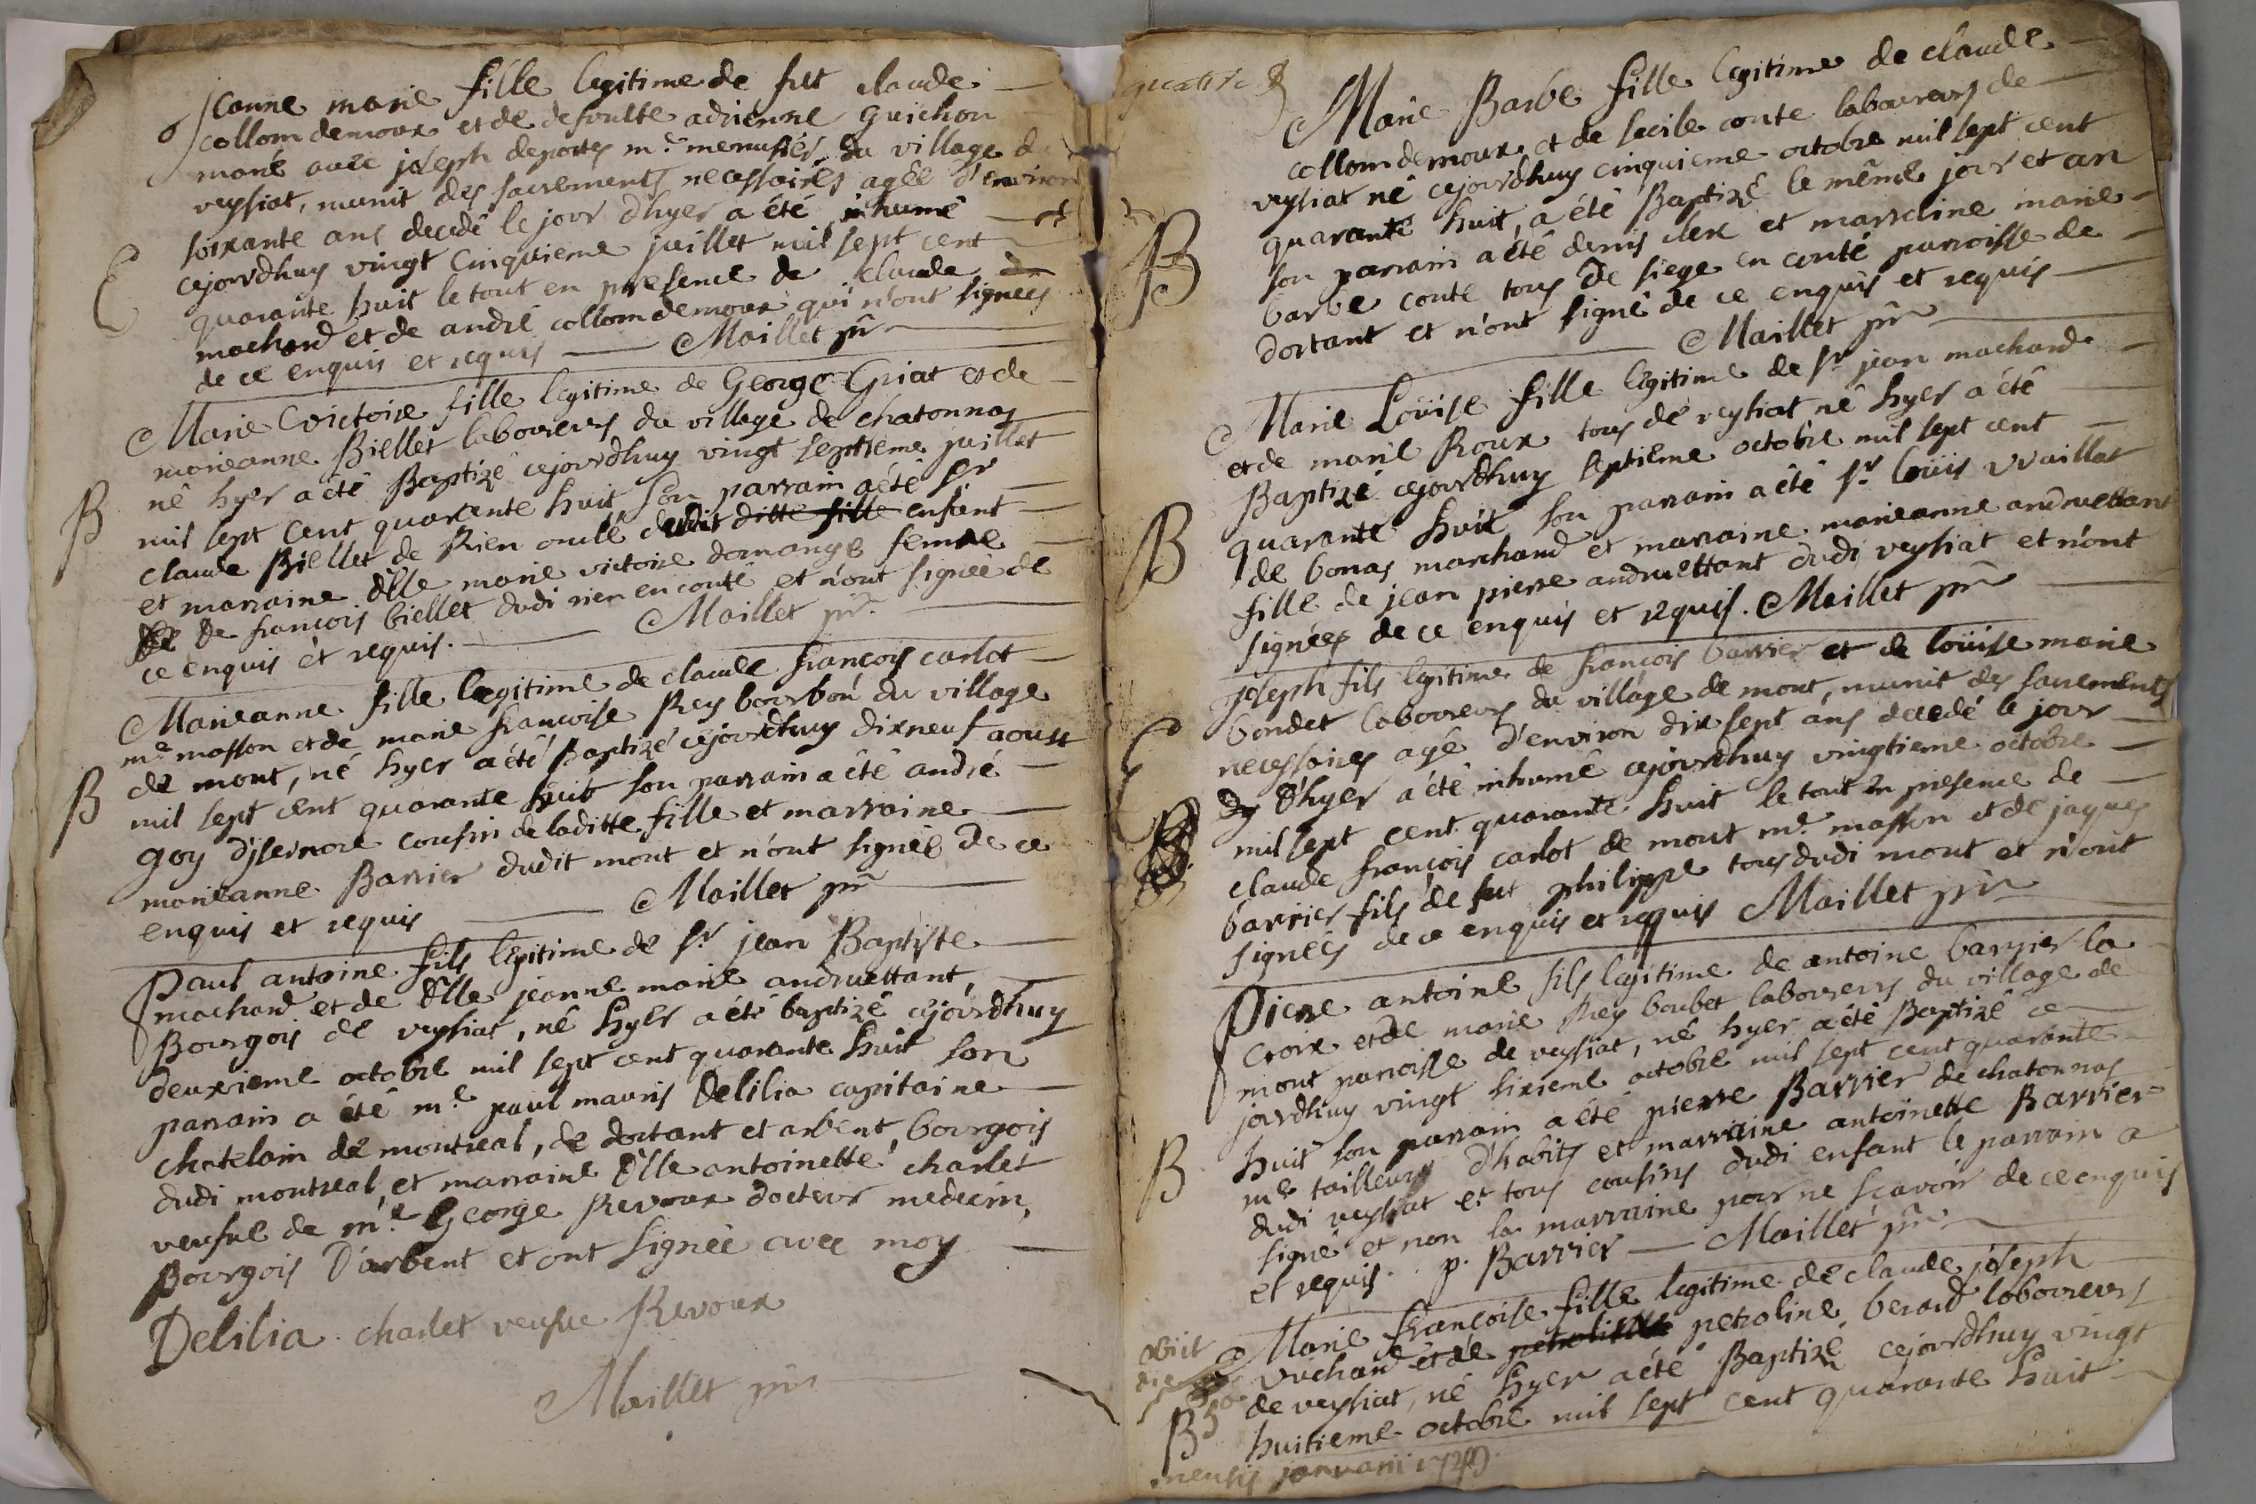 Jeanne marie fille legitime de feu claude
collomdemoux et de defunte adrienne guichon
marié avec joseph deportes me menusier du village de
veysiat, munit des sacrements necessaires agée d'environ
soixante ans decedé le jour d'hyer a été inhumé
E
cejourdhuy vingt cinquieme juillet mil sept cent
quarante huit le tout en presence de claude
machard et de andré collomdemoux qui n'ont signées
de ce enquis et requis Maillet
Marie victoire fille legitime de George Griat et de
marieanne Biellet laboureurs du village de chatonnas
B
né hyer a été Baptizé cejourdhuy vingt septieme juillet
mil sept cent quarante huit son parrain a été sr
claude Biellet de Rien oncle dudit ditte fille enfant
et marraine dlle marie victoire domange femme
de françois biellet dudi rien en conté et n'ont signée de
ce enquis et requis. Maillet
Marieanne fille legitime de claude françois carlot
me masson et de marie françoise Rey bourbon du village
B
de mont, né hyer a été Baptizé cejourdhuy dixneuf aoust
mil sept cent quarante huit son parrain a été andré
goy d'isernore cousin de laditte fille et marraine
marieanne Barrier dudit mont et n'ont signée de ce
enquis et requis Maillet
Paul antoine fils legitime de sr jean Baptiste
machard et de dlle jeanne marie andruettant,
Bourgois de veysiat, né hyer a été baptizé cejourdhuy
deuxieme octobre mil sept cent quarante huit son
parrain a été me paul mauris Delilia capitaine
chatelain de montreal, de dortant et arbent, bourgois
dudi montreal, et marraine dlle antoinette charlet
veufue de me George Revoux docteur medecin,
Bourgois D'arbent et ont signée avec moy
Delilia charlet veufue Revoux
Maillet
quatre
Marie Barbe fille legitime de claude
collomdemoux et de secile conte laboureurs de
veysiat né cejourdhuy cinquieme octobre mil sept cent
B
quarante huit, a été Baptizé le même jour et an
son parrain a été denis clerc et marraine marie
barbe conte tous de siege en conté parroisse de
dortant et n'ont signé de ce enquis et requis
Maillet
Marie Loüise fille legitime de sr jean machard
et de marie Roux tous de veysiat né hyer a été
Baptizé cejourdhuy septieme octobre mil sept cent
B
quarante huit son parrain a été sr loüis vuaillat
de bonas marchand et marraine marieanne andruettant
fille de jean pierre andruettant dudi veysiat et n'ont
signées de ce enquis et requis. Maillet
joseph fils legitime de françois barrier et de loüise marie
bondet laboureurs du village de mont, munit des sacrements
E
necessaires agé d'environ dix sept ans decedé le jour
d'hyer a été inhumé cejourdhuy vingtieme octobre
mil sept cent quarante huit le tout en presence de
claude françois carlot de mont me masson et de jaques
barrier fils de feu philippe tous dudi mont et n'ont
signées de ce enquis et requis Maillet
Pierre antoine fils legitime de antoine barrier la
croix et de marie Rey boubet laboureurs du village de
mont parroisse de veysiat, né hyer a été Baptizé ce
jourdhuy vingt sixieme octobre mil sept cent quarante
B
huit son parrain a été pierre Barrier de chatonnas
me tailleurs d'habits et marraine antoinette Barrier
dudi veysiat et tous cousins dudi enfant le parrain a
signé et non la marraine pour ne sçavoir de ce enquis
et requis. p. Barrier Maillet
Marie françoise fille legitime de claude joseph
obiit
vuchard et de petroline berard laboureurs
die
de veysiat, né hyer a été Baptizé cejourdhuy vingt
B
huitieme octobre mil sept cent quarante huit
mensis januarii 1749.